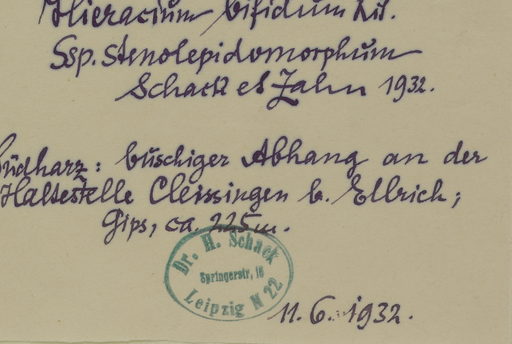 Hieracium bifidum Kit.
Ssp. stenolepidomorphum
Schack et Zahn 1932.
Südharz: buschiger Abhang an der
Haltestelle Cleissingen b. Ellrich;
Gips, ca. 225m.
Dr. H. Schack
Springerstr. 16
Leipzig N 22
11. 6. 1932.